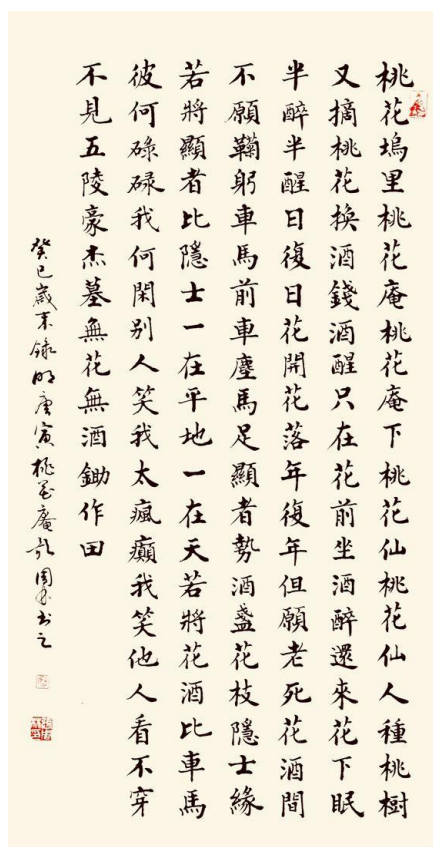 桃花塢里桃花庵桃花庵下桃花仙桃花仙人種桃樹
又摘桃花換酒錢酒醒只在花前坐酒醉還來花下眠
半醉半醒日復日花開花落年復年但願老死花酒間
不願鞠躬車馬前車塵馬足顯者勢酒盞花枝隱士緣
若將顯者比隱士一在平地一在天若將花酒比車馬
彼何碌碌我何閑別人笑我太瘋癲我笑他人看不穿
不見五陵豪杰墓無花無酒鋤作田
癸巳歲末錄明唐寅桃花庵歌周